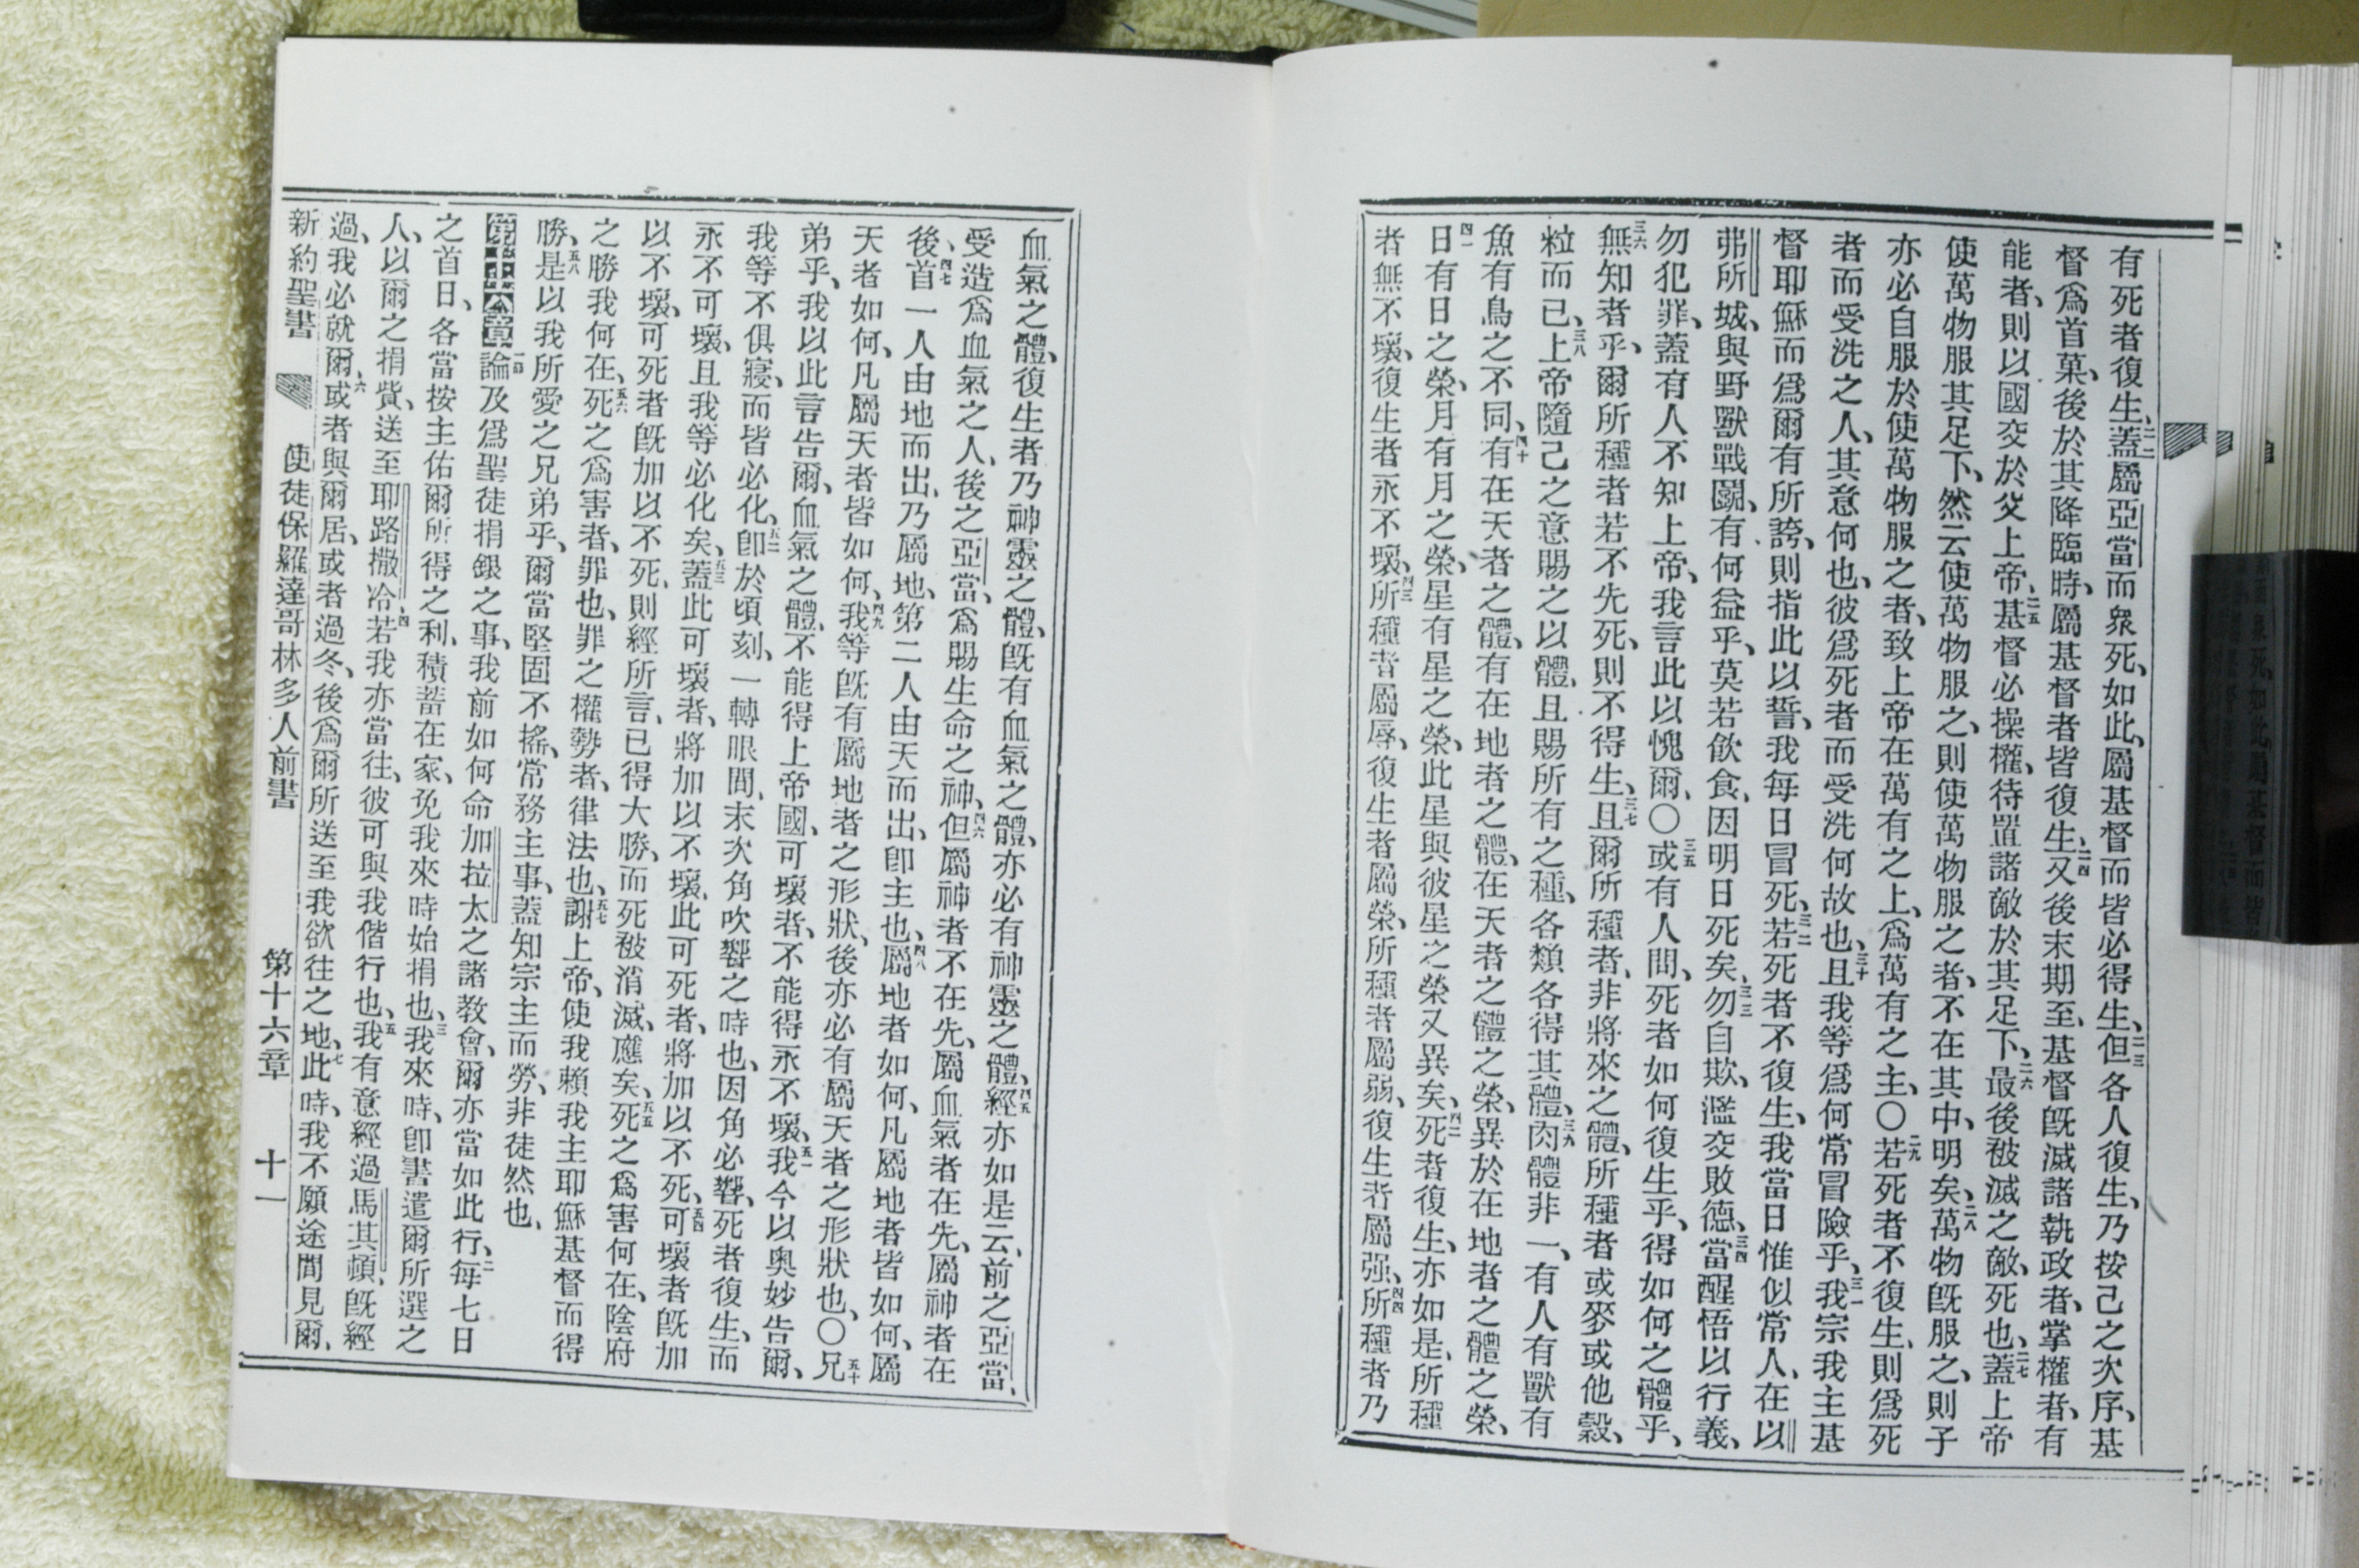 有死者復生、二二蓋屬亞當而衆死、如此、屬基督而皆必得生、二三但各人復生、乃按己之次序、基
督爲首菓、後於其降臨時、屬基督者皆復生、二四又後末期至、基督旣滅諸執政者、掌權者、有
能者、則以國交於父上帝、二五基督必操權、待置諸敵於其足下、二六最後被滅之敵、死也、二七蓋上帝
使萬物服其足下、然云使萬物服之、則使萬物服之者、不在其中、明矣、二八萬物旣服之、則子
亦必自服於使萬物服之者、致上帝在萬有之上、爲萬有之主、〇二九若死者不復生、則爲死
者而受洗之人、其意何也、彼爲死者而受洗何故也、三十且我等爲何常冒險乎、三一我宗我主基
督耶穌而爲爾有所誇、則指此以誓、我每日冒死、三二若死者不復生、我當日惟似常人、在以
弗所城、與野獸戰鬭、有何益乎、莫若飲食、因明日死矣、三三勿自欺、濫交敗德、三四當醒悟以行義、
勿犯罪、蓋有人不知上帝、我言此以愧爾、〇三五或有人問、死者如何復生乎、得如何之體乎、
三六無知者乎、爾所種者若不先死、則不得生、三七且爾所種者、非將來之體、所種者或麥或他穀、
粒而已、三八上帝隨己之意賜之以體、且賜所有之種、各類各得其體、三九肉體非一、有人有獸有
魚有鳥之不同、四十有在天者之體、有在地者之體、在天者之體之榮、異於在地者之體之榮、
四一日有日之榮、月有月之榮、星有星之榮、此星與彼星之榮又異矣、四二死者復生、亦如是、所種
者無不壞、復生者永不壞、四三所種者屬辱、復生者屬榮、所種者屬弱、復生者屬强、四四所種者乃
血氣之體、復生者乃神靈之體、旣有血氣之體、亦必有神靈之體、四五經亦如是云、前之亞當、
受造爲血氣之人、後之亞當、爲賜生命之神、四六但屬神者不在先、屬血氣者在先、屬神者在
後、四七首一人由地而出、乃屬地、第二人由天而出、卽主也、四八屬地者如何、凡屬地者皆如何、屬
天者如何、凡屬天者皆如何、四九我等旣有屬地者之形狀、後亦必有屬天者之形狀也、〇五十兄
弟乎、我以此言告爾、血氣之體、不能得上帝國、可壞者、不能得永不壞、五一我今以奧妙告爾、
我等不俱寢、而皆必化、五二卽於頃刻、一轉眼間、末次角吹響之時也、因角必響、死者復生、而
永不可壞、且我等必化矣、五三蓋此可壞者、將加以不壞、此可死者、將加以不死、五四可壞者旣加
以不壞、可死者旣加以不死、則經所言、已得大勝、而死被消滅、應矣、五五死之爲害何在、陰府
之勝我何在、五六死之爲害者、罪也、罪之權勢者、律法也、五七謝上帝、使我賴我主耶穌基督而得
勝、五八是以我所愛之兄弟乎、爾當堅固不搖、常務主事、蓋知宗主而勞、非徒然也、
第十六章 一節論及爲聖徒捐銀之事、我前如何命加拉太之諸教會、爾亦當如此行、二每七日
之首日、各當按主佑爾所得之利、積蓄在家、免我來時始捐也、三我來時、卽書遣爾所選之
人、以爾之捐貲、送至耶路撒冷、四若我亦當往、彼可與我偕行也、五我有意經過馬其頓、旣經
過、我必就爾、六或者與爾居、或者過冬、後爲爾所送至我欲往之地、七此時、我不願途間見爾、
新約聖書 使徒保羅達哥林多人前書 第十六章 十一